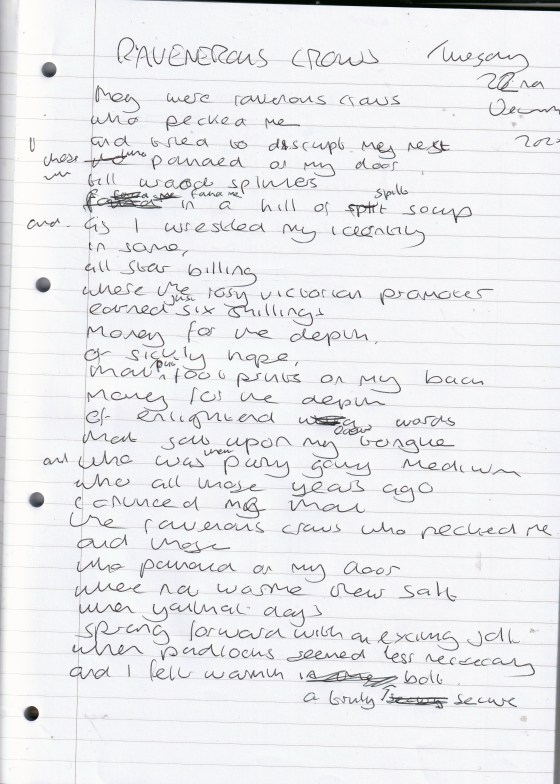 RAVENEROUS CROWS Tuesday
22nd
They were raverous craws
who pecked me
and tried to disscupt my rest
those who panaed on my door
till wood splinters
found me in a hill of spilt soup
and as I wrestled my identity
in some,
all star billing
where the just rosy victorian promoter
earned six shillings
Money for the depth,
of sickly hope,
that put foot prints on my back
Money for the depth
of enlightend words
that sat upon my tongue
and who was then gang medium
who all those years ago
that
the raverous craws who pecked me
and those
who panaed on my door
where no warme threw salt
when days
spring forward with an exciting jolt
when padlocks seemed less neccecary
and I felt warmth bolt.
a truly secure